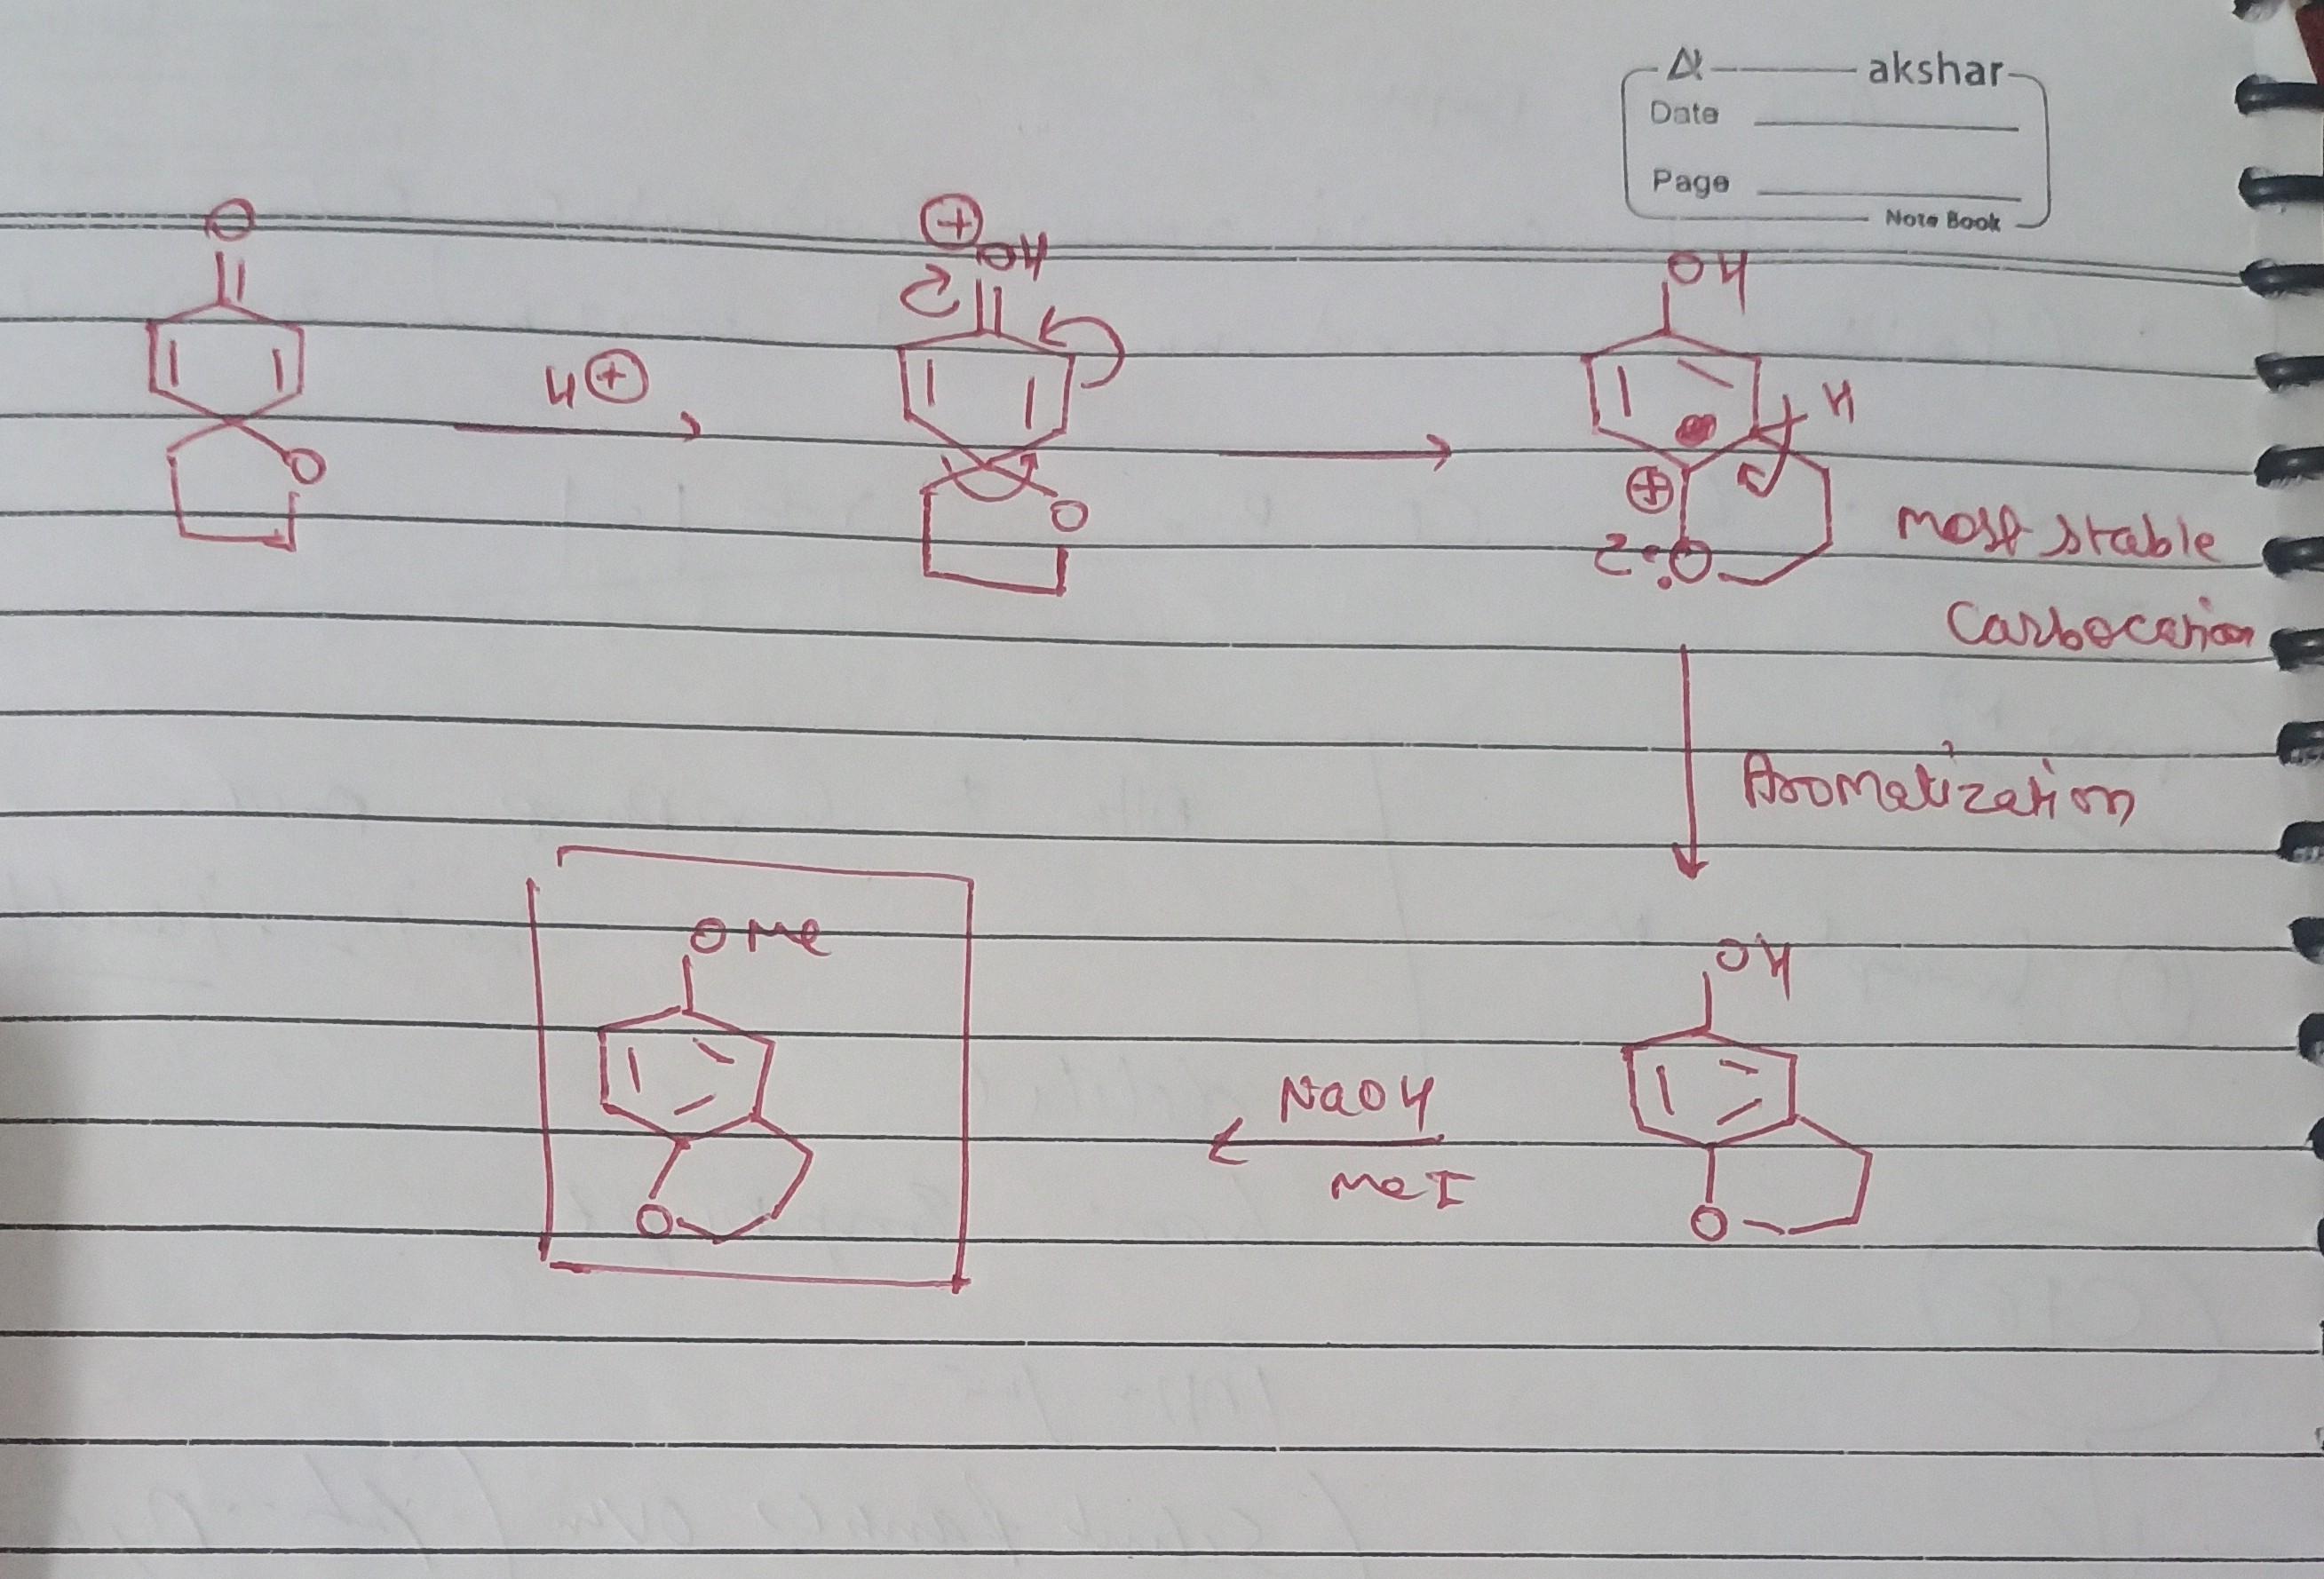 akshar
Date
Page
Note Book
O
⊕
OH
OH
H⊕
H
O
O
⊕
:O:
most stable
Carbocation
Aromatization
OMe
OH
NaOH
MeI
O
O